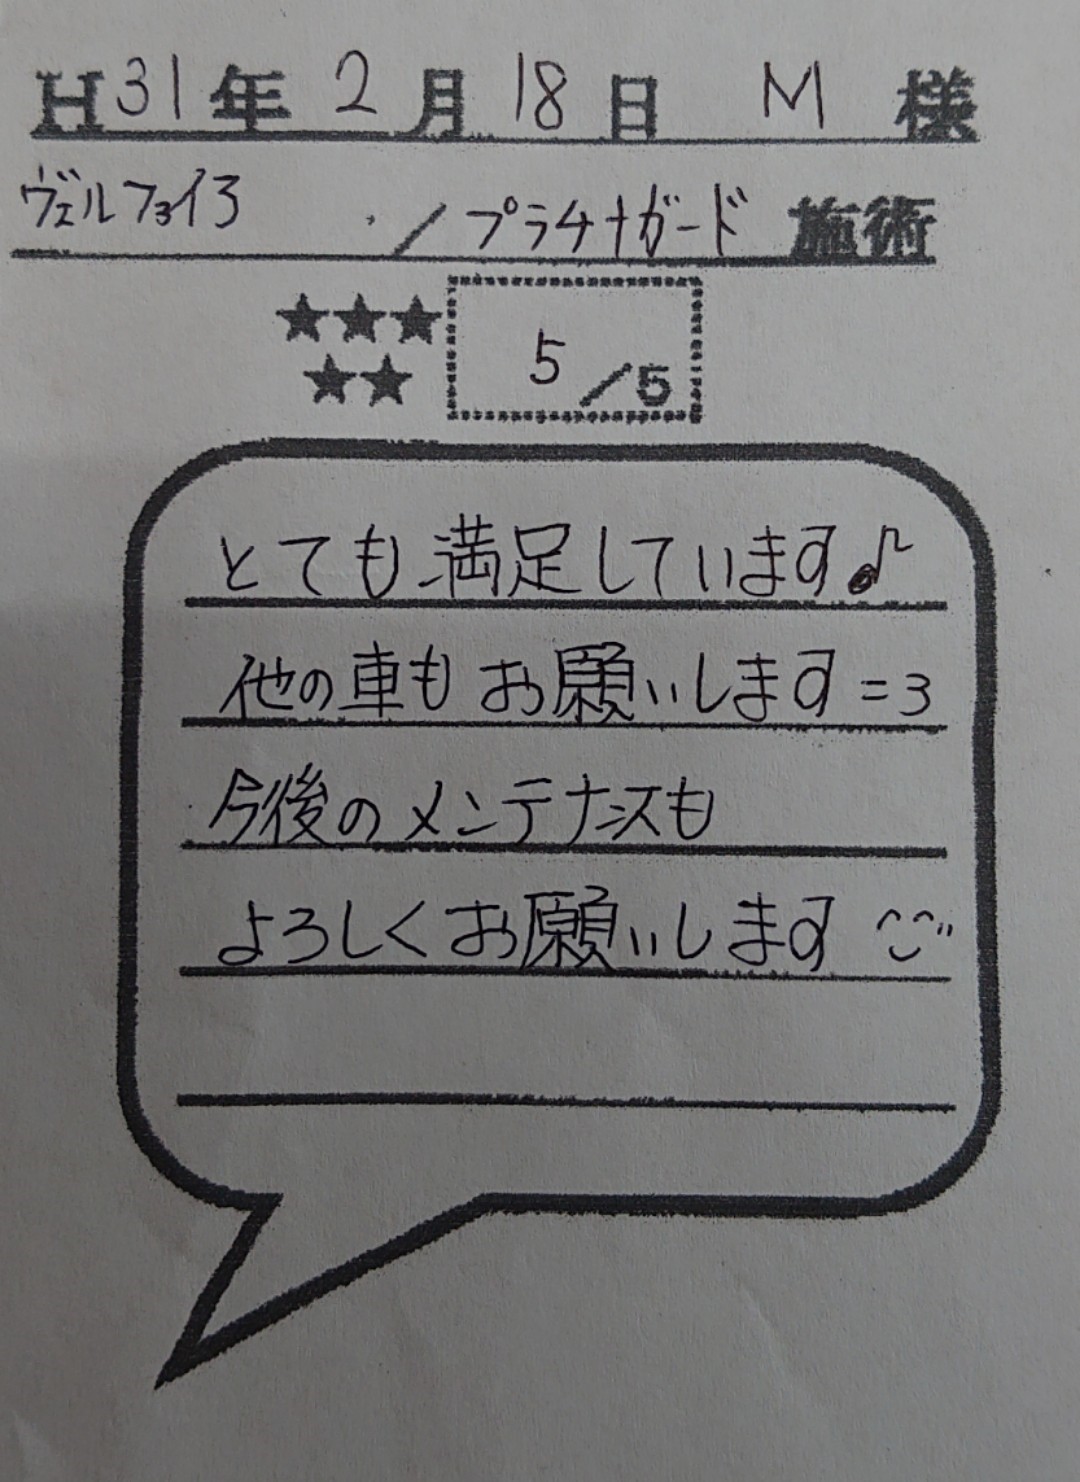 H31年 2月 18日 M 様
ヴェルファイア ／プラチナガード 施術
★★★
★★
5／5
とても満足しています♪
他の車もお願いします=3
今後のメンテナンスも
よろしくお願いします^^